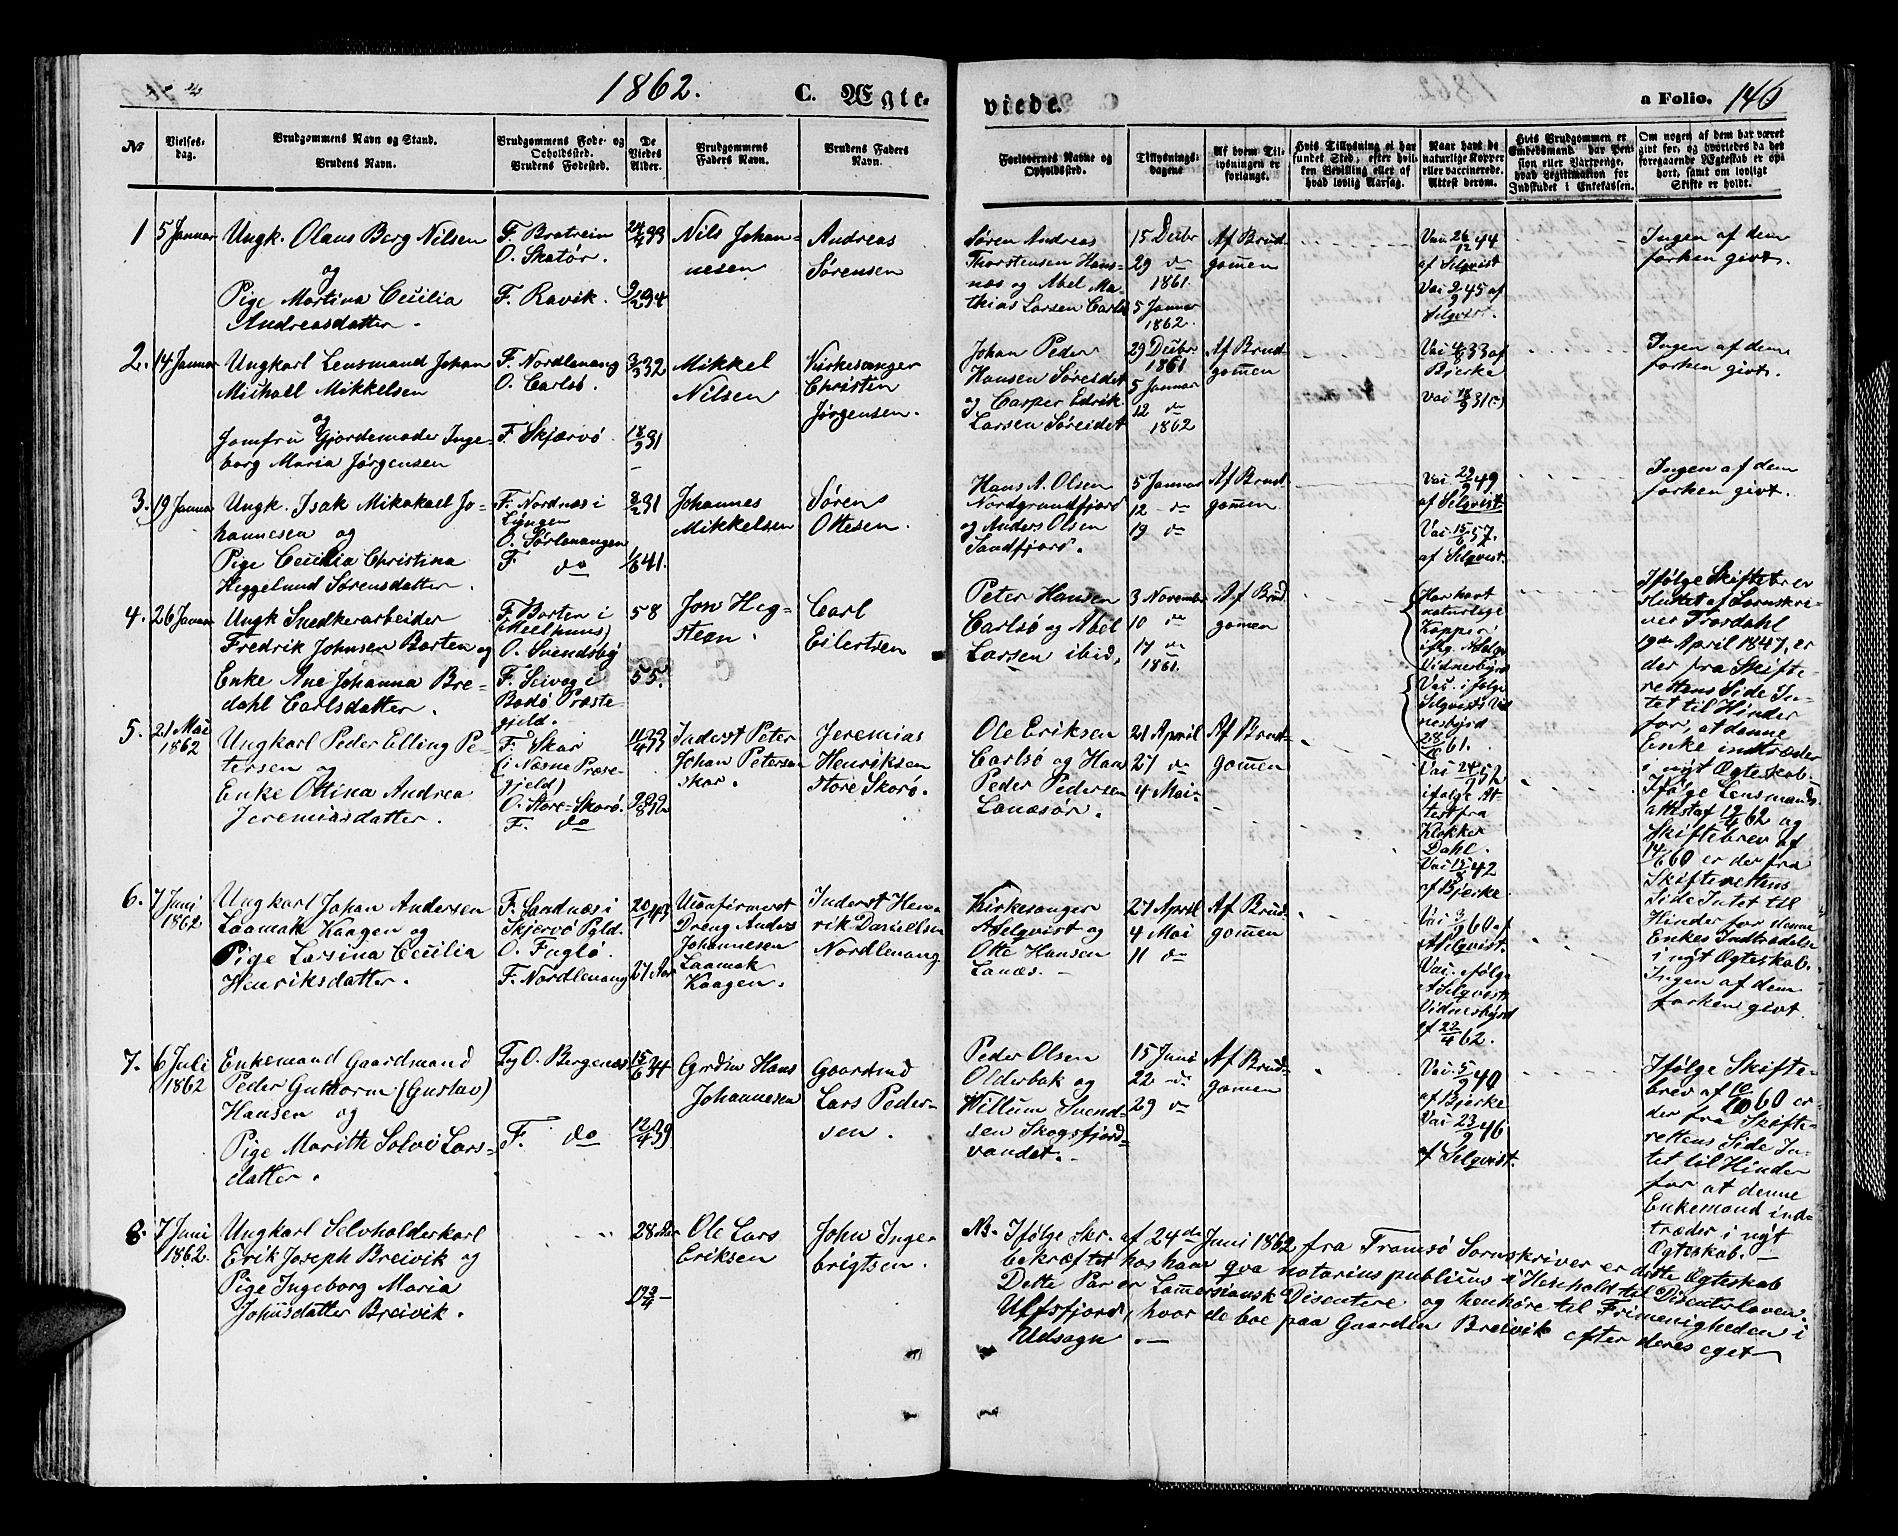 1862. C. Ægte-
viede.
a Folio. 146
No
Vielses-
dag.
Brudgommens Navn og Stand.
Brudens Navn.
Brudgommens Føde- og
Opholdssted.
Brudens Fødested.
De
Viedes
Alder.
Brudgommens
Faders Navn.
Brudens Faders
Navn.
Forlovernes Navne og
Opholdssted.
Tillysnings-
dagene
Af hvem Til-
lysningen er
forlangt.
Hvis Tillysning ei har
fundet Sted, efter hvil-
ken Bevilling eller af
hvad lovlig Aarsag.
Naar havt de
naturlige Kopper
eller vaccinerede.
Attest derom.
Hvis Brudgommen er
Embedsmand har Pen-
sion eller Vartpenge,
hvad Legitimation for
Indskudet i Enkekassen.
Om nogen af dem har været
gift før, og hvorledes da det
foregaaende Ægteskab er op-
hørt, samt om lovligt
Skifte er holdt.
1 5 Januar
Ungk. Olaus Berg Nilsen
og
Pige Martina Cecilia
Andreasdatter.
F. Bratrein
O. Skatør.
F. Ravik.
24/4 33
9/12 34
Nils Johan-
nesen
Andreas
Sørensen
Søren Andreas
Thorstensen Hans-
næs og Abel Ma-
thias Larsen Carlsø
15 Decbr
29 do
1861.
5 Januar
1862.
Af Brud-
gommen
Vac 26/12 44
af Selqvist
Vac 2/9 45 af
Selqvist.
Ingen af dem
før ken givt.
2. 14 Januar
Ungkarl Lensmand Johan
Michael Mikkelsen
og
Jomfru Gjordemoder Inge-
borg Maria Jørgensen
F. Nordlenang
O. Carlsø.
F. Skjærvø
3/3 32
18/9 31
Mikkel
Nilsen
Kirkesanger
Christen
Jørgensen.
Johan Peder
Hansen Søreidet
og Casper Edrik
Larsen Søreidet
29 Decbr
1861
5 Januar
12 do
1862
Af Brud-
gommen
Vac 4/8 33 af
Bjerke
Vac 18/9 31
Ingen af dem
før ken givt.
3. 19 Januar
Ungk. Isak Mikakael Jo-
hannesen og
Pige Cecilia Christina
Heggelund Sørensdatter.
F. Nordnæs i
Lyngen
O. Sørlenangen
F. do
8/2 31
1/6 41.
Johannes
Mikkelsen
Søren
Ottesen.
Hans A. Olsen
Nordgrundfjord
og Anders Olsen
Sandfjord.
5 Januar
12 do
19 do
Af Brud-
gommen
Vac 29/9 49
af Selqvist
Vac 15/6 57.
af Selqvist.
Ingen af dem
før ken givt.
4. 26 Januar
Ungk Snedkerarbeider
Fredrik Johnsen Borten og
Enke Ane Johanna Bre-
dahl Carlsdatter.
F. Borten i
(Meelhuus)
O. Svendsby
F. Seivog i
Bodø Præste-
gjeld.
58
55.
Jon Heg-
steen.
Carl
Eilertsen
Peter Hansen
Carlsø og Abel
Larsen ibid.
3 November
10 do
17 do
1861.
Af Brud-
gomen
Har havt
naturlige
Kopper
Vidnesbyrd
Vac. ifølge
Selqvists Vid-
nesbyrd
61.
Ifølge Skiftebrev
af Sornskri-
ver Trordahl
19de April 1847, er
der fra Skifte-
rettens Side In-
tet til Hinder
for, at denne
Enke indtræder
i nyt Ægteskab.
5. 21 Mai
1862
Ungkarl Peder Elling Pe-
tersen og
Enke Ottina Andrea
Jeremiasdatter.
F. Skar
(i Næsne Præste-
gjeld)
O. Store-Skorø.
F. do
11/4 33
22/8 32
Inderst Peter
Johan Petersen
Skar.
Jeremias
Henriksen
Store Skorø.
Ole Eriksen
Carlsø og Hans
Peder Pedersen
Lanæsør.
21 April
27 do
4 Mai
Af Brud-
gommen
Vac 24/9 52
ifølge At-
test fra
Klokker
Dahl.
Vac 15/8 42
af Bjerke.
Ifølge Lensmands
attest af 12/4 62 og
Skiftebrev af
14/6 60 er der fra
Skifterettens
Side Intet til
Hinder for denne
Enkes Indtrædelse
i nyt Ægteskab.
6. 7 Juni
1862
Ungkarl Johan Andersen
Laamak Kaagen og
Pige Larsina Cecilia
Henriksdatter.
F. Sandnæs i
Skjervø Pgld.
O. Fuglø.
F. Nordlenang
20/1 43
27 Aar
Uconfirmeret
Dreng Anders
Johannesen
Laamak
Kaagen.
Inderst Hen-
rik Danielsen
Nordlenang
Kirkesanger
A Selqvist og
Otte Hansen
Lanæs.
27 April
4 Mai
11 do
Af Brud-
gommen
Vac 3/9 60 af
A Selqvist.
Vac. ifølge
A Selqvists
Vidnesbyrd
af 22/4 62.
Ingen af dem
før ken givt.
7. 6 Juli
1862
Enkemand Gaardmand
Peder Guttorm (Gustav)
Hansen og
Pige Marith Solvi Lars-
datter.
F og O. Bergenæs
F. do
15/6 34
12/4 39
Grdm Hans
Johannesen
Gaardmd
Lars Peder-
sen.
Peder Olsen
Olderbak og
Willum Svend-
sen Skogsfjord-
vandet.
15 Juni
22 do
29 do
Af Brud-
gomen
Vac 5/9 40
af Bjerke
Vac 23/9 46
af Selqvist.
Ifølge Skifte-
brev af 10/10 60 er
der fra Skifte-
rettens Side In-
tet til Hinder
for at denne
Enkemand ind-
træder i nyt
Ægteskab.
8. 7 Juni
1862.
Ungkarl Selvholderkarl
Erik Joseph Breivik og
Pige Ingeborg Maria
Johnsdatter Breivik.
28 Aar
Ole Lars
Eriksen
John Inge-
brigtsen.
NB. Ifølge Skr. af 24de Juni 1862 fra Tromsø Sornskriver er dette Ægteskab
bekræftet hos ham qva notarius publicus i Henhold til Disenterloven.
Dette Par er Lammersiansk Disentere og henhøre til Frimenigheden i
Ulfsfjord, hvor de boe paa Gaarden Breivik efter deres eget
Udsagn.